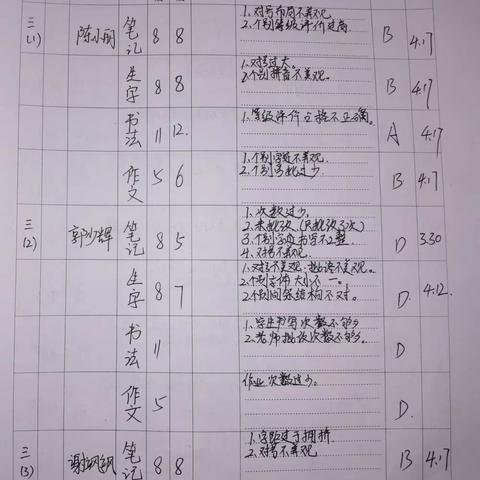 三(1) 陈小丽 笔记 8 8 1、对号布局不美观 B 4.17
2、个别等级评价过高
生字 8 8 1、对号过大。 B 4.17
2、个别拼音不美观。
书法 11 12. 1、等级评价立按不正确。 A 4.17
作文 5 6 1、个别字迹不美观. B 4.17
2、个别眉批过少.
三(2) 笔记 8 5 1、次数过少, D 3.30
2、未批改(只批改3次)
3、个别字 书写不
4、对号不美观.
生字 8 7 1、对号不美观,批语不美观。 D. 4.12.
2、个别字体大小不一。
个别间架结构不对。
书法 11 1、学生书写次数不够多 D
2、老师批改次数不够。
作文 5 作业次数过少。 D.
三(3) 笔记 8 8 1、字距过于拥挤. B 4.17
2、对号不美观